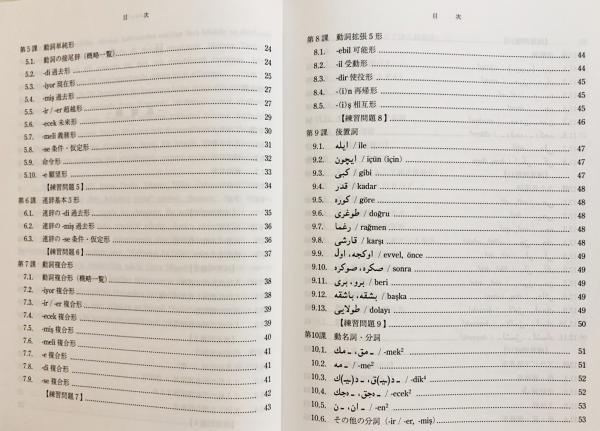 目　次
第5課　動詞単純形
5.1. 動詞の接尾辞（概略一覧） 24
5.2. -di 過去形 24
5.3. -iyor 現在形 25
5.4. -miş 過去形 26
5.5. -ir / -er 超越形 27
5.6. -ecek 未来形 29
5.7. -meli 義務形 30
5.8. -se 条件・仮定形 31
5.9. 命令形 32
5.10. -e 願望形 33
【練習問題5】 34
第6課　連辞基本5形
6.1. 連辞の -di 過去形 35
6.2. 連辞の -miş 過去形 36
6.3. 連辞の -se 条件・仮定形 36
【練習問題6】 37
第7課　動詞複合形
7.1. 動詞複合形（概略一覧） 38
7.2. -iyor 複合形 38
7.3. -ir / -er 複合形 39
7.4. -ecek 複合形 39
7.5. -miş 複合形 40
7.6. -meli 複合形 41
7.7. -e 複合形 41
7.8. -di 複合形 42
7.9. -se 複合形 42
【練習問題7】 43
目　次
第8課　動詞拡張5形
8.1. -ebil 可能形 44
8.2. -il 受動形 44
8.3. -dir 使役形 45
8.4. -(i)n 再帰形 45
8.5. -(i)ş 相互形 46
【練習問題8】 46
第9課　後置詞
9.1. ايله / ile 47
9.2. ايچون / içün (için) 47
9.3. كبى / gibi 47
9.4. قدر / kadar 47
9.5. كوره / göre 48
9.6. طوغرى / doğru 48
9.7. رغما / rağmen 48
9.8. قارشى / karşı 48
9.9. اوڭجه، اول / evvel, önce 48
9.10. صكره، صوكره / sonra 48
9.11. برو، برى / beri 49
9.12. بشقه، باشقه / başka 49
9.13. طولايى / dolayı 49
【練習問題9】 50
第10課　動名詞・分詞
10.1. ـمق، ـمك / -mek² 51
10.2. ـمه / -me² 51
10.3. ـد(يـ)ق، ـد(يـ)ك / -dik⁴ 51
10.4. ـەجق، ـەجك / -ecek² 52
10.5. ـان، ـن / -en² 53
10.6. その他の分詞 (-ir / -er, -miş) 53